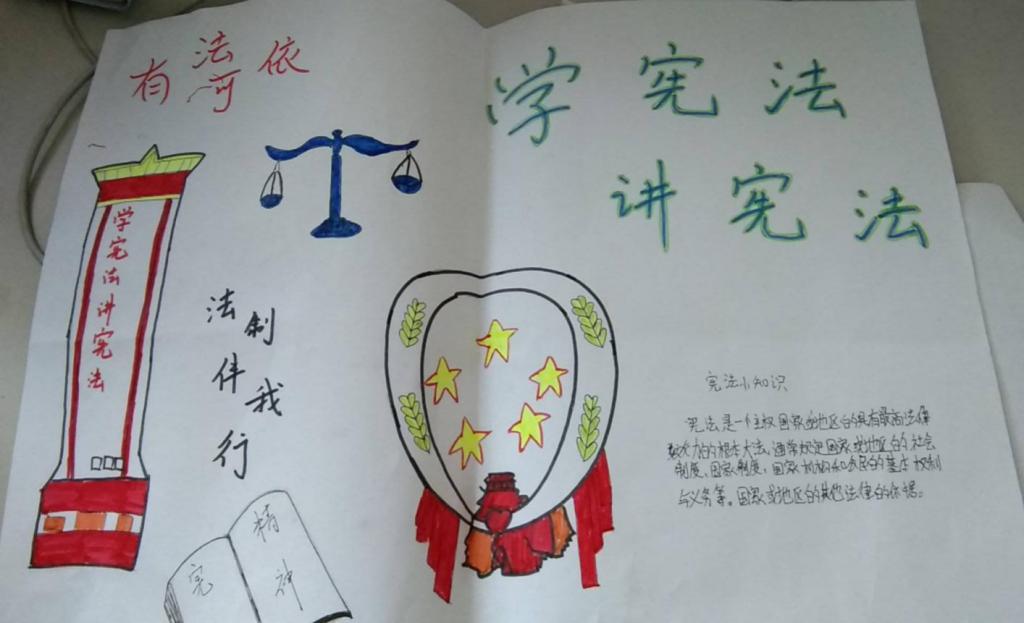 有法可依
学宪法
讲宪法
学宪法讲宪法
法制伴我行
宪
精神
宪法小知识
宪法是一个主权国家或地区的具有最高法律
效力的根本大法,通常规定国家或地区的社会
制度、国家制度、国家机构和公民的基本权利
与义务等。国家或地区的其他法律的依据。